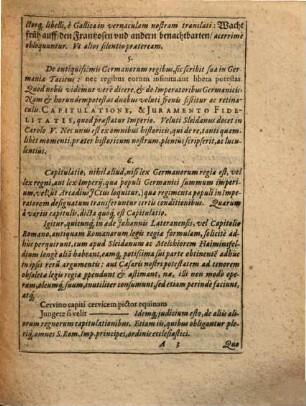 storq, libelli, è Gallica in vernaculam nostram translati: Wacht
früh auff den Frantzosen vnd andern benachbarten/ acerrimè
obloquuntur. Vt alios silentio præteream.
5.
De antiquissimis Germanorum regibus, sic scribit sua in Ger-
mania Tacitus: nec regibus eorum infinita aut libera potestas
Quod nobis vidimur verè dicere, & de Imperatoribus Germanicis.
Nam & horundem potestas duabus veluti frenis sistitur ac retina-
culis. CAPITULATIONE, & JURAMENTO FIDE-
LITATIS, quod præstatur Imperio. Veluti Sleidanus docet in
Carolo V. Nec unus est ex omnibus historicis, qui de re, tanti quem-
libet momenti, præter historicum nostrum, plenius scripserit, ac lucu-
lentius.
6.
Capitulatio, nihil aliud, nisi lex Germanorum regia est, vel
lex regni, aut lex Imperij, qua populi Germanici summum imperi-
um, vel, ut Arcadius JCtus loquitur, qua regimenta populi in Impe-
ratorem designatum transferuntur certis conditionibus. Quarum
à variis capitulis, dicta quoq, est Capitulatio.
Igitur, qui unq in æde Johannis Lateranensis, vel Capitolio
Romano, antiquam Romanorum legis regiæ formulam, solicitè ad
huc perquirunt, eum apud Sleidanum ac Melchiorem Haiminsfel-
dium longè aliā habeant, eamq, potissimā sui parte obtineant adhuc
in ipsis rerū argumentis: aut Cæsaris nostri potestatem ad tenorem
obsoletæ legis regiæ pendunt & æstimant, næ, illi non modò ope-
ram, oleumq, suum, inutiliter consumunt, sed etiam perinde faciunt,
atq,
Cervino capiti cervicem pictor equinam
Jungere si velit ⸺ Idemq, judicium esto, de aliis ali-
orum regnorum capitulationibus. Etiam iis, quibus obligantur ple-
riq, omnes S. Rom. Imp. principes, ordinis ecclesiastici.
A 3 Quo